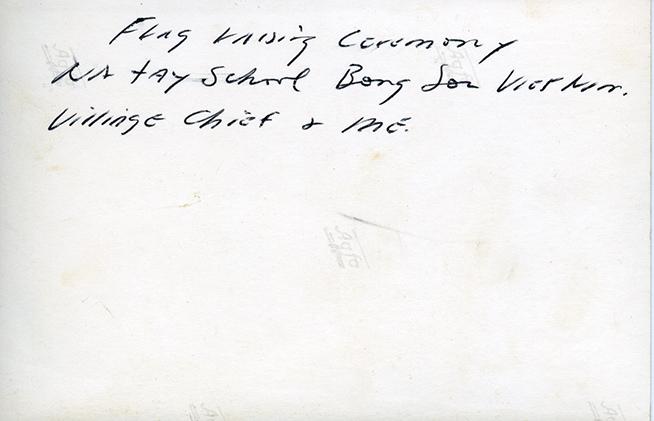 Flag raising Ceremony
NA tAy School Bong Son Viet Nam.
Village Chief & ME.
Agfa
Agfa
Agfa